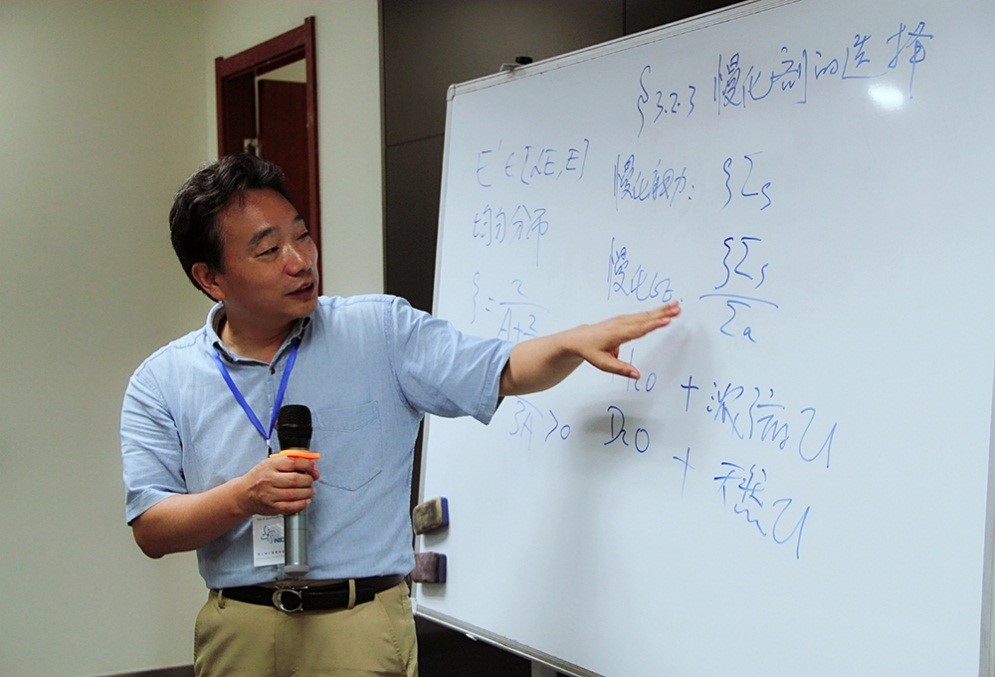 §3.2.3 慢化剂的选择
E'∈[αE,E]
均匀分布
ξ=2/(A+2/3
3A>0
慢化能力: ξΣs
慢化比: ξΣs/Σa
H2O + 浓缩U
D2O + 天然U